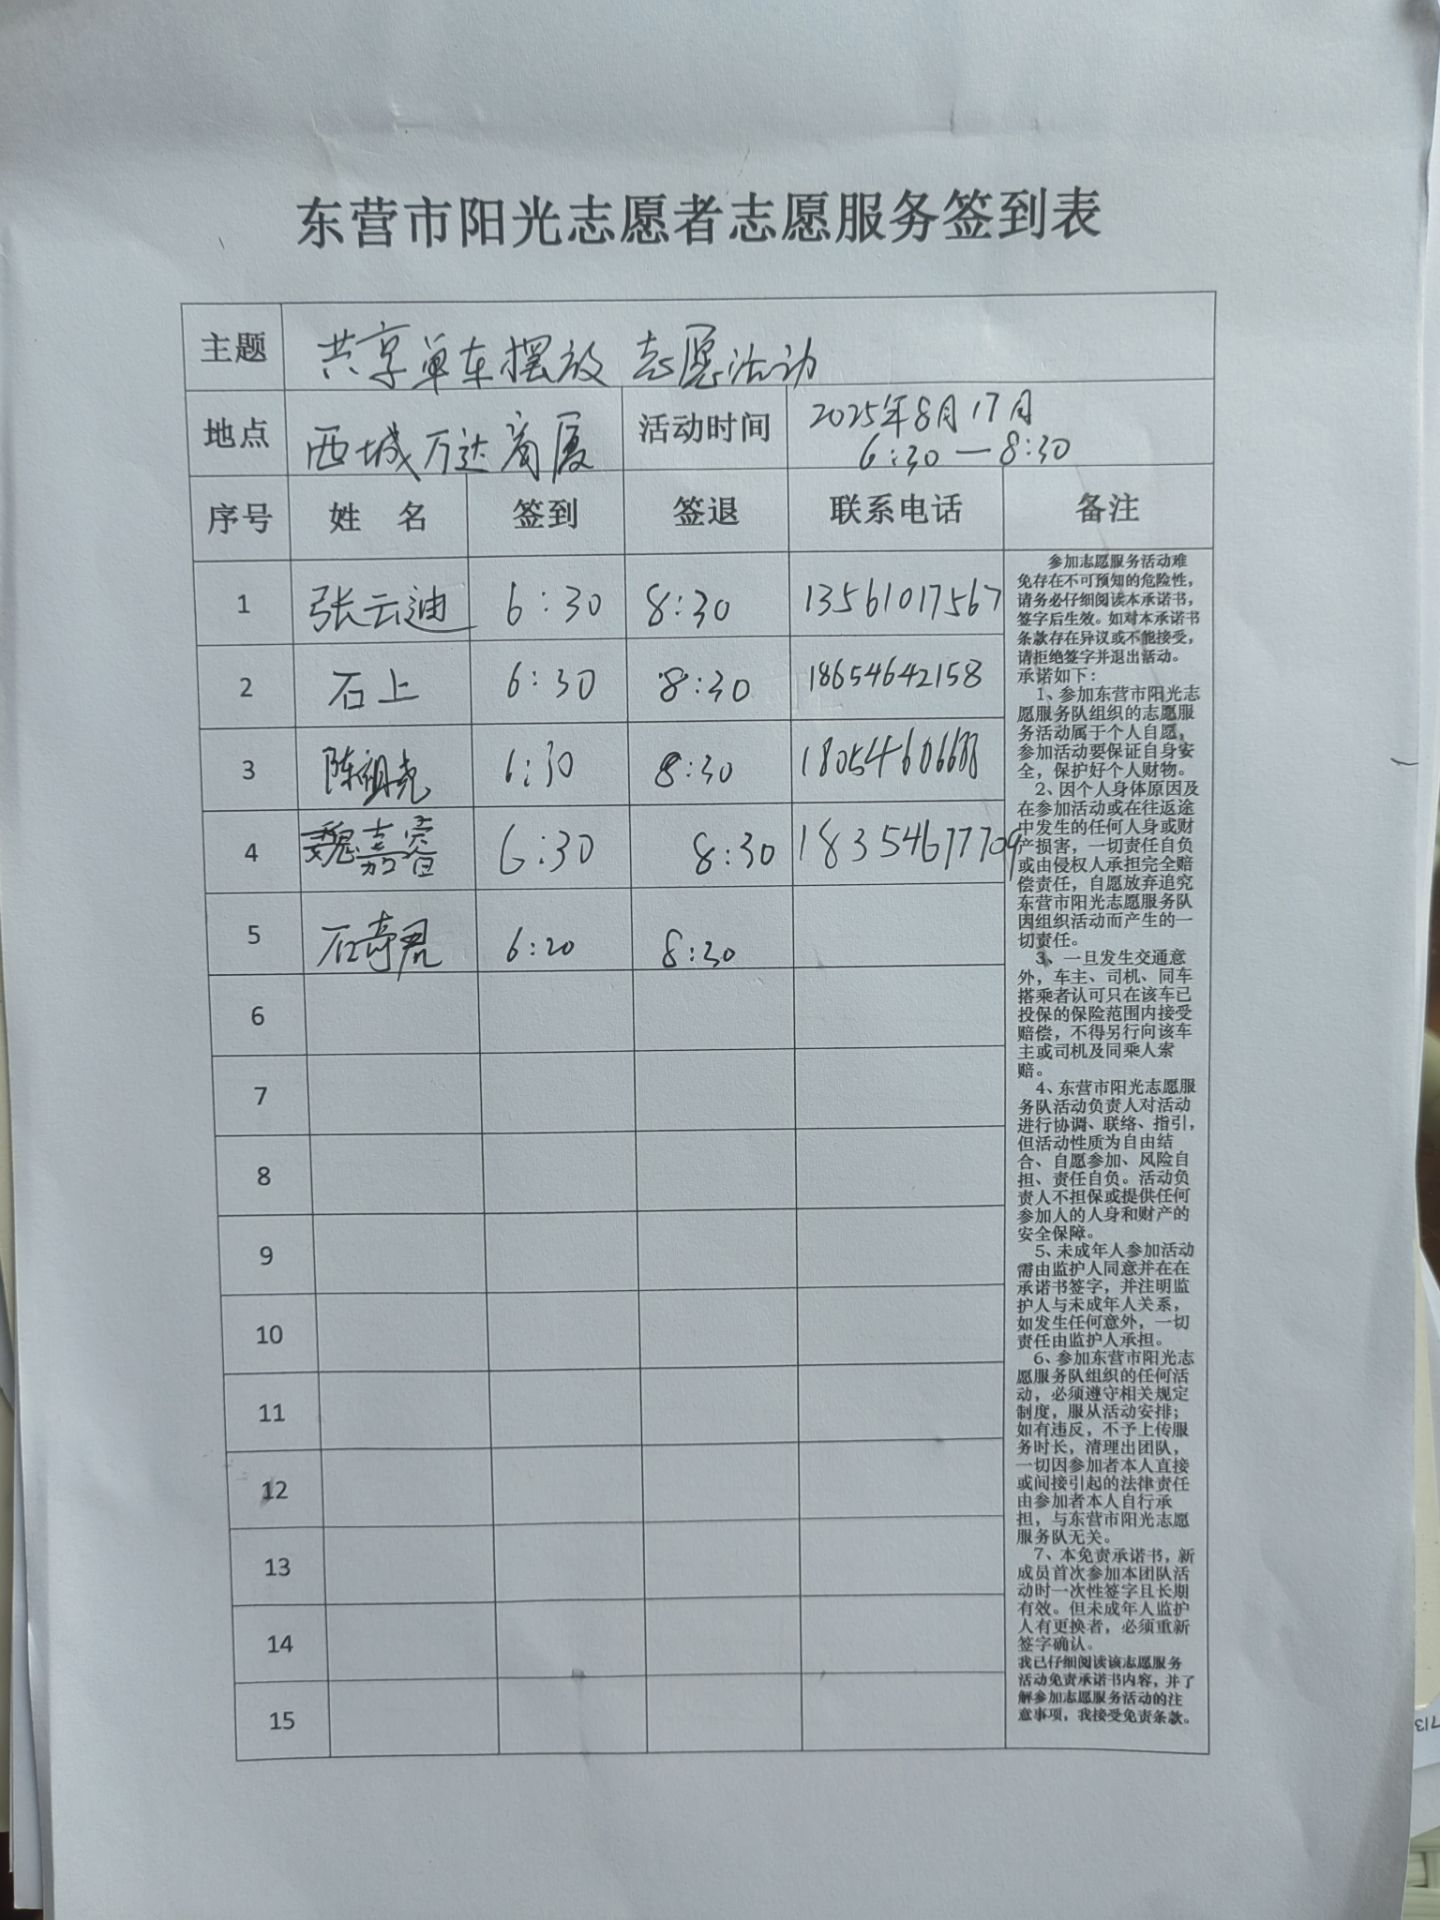 东营市阳光志愿者志愿服务签到表
主题 共享单车摆放 志愿活动
地点 西城万达商厦 活动时间 2025年8月17月
6:30—8:30
序号 姓 名 签到 签退 联系电话 备注
1 张云迪 6:30 8:30 13561017567
2 石上 6:30 8:30 18654642158
3 陈祖尧 6:30 8:30 18054606688
4 魏嘉睿 6:30 8:30 18354677709
5 石奇君 6:20 8:30
6
7
8
9
10
11
12
13
14
15
参加志愿服务活动难
免存在不可预知的危险性，
请务必仔细阅读本承诺书，
签字后生效。如对本承诺书
条款存在异议或不能接受，
请拒绝签字并退出活动。
承诺如下：
1、参加东营市阳光志
愿服务队组织的志愿服
务活动属于个人自愿，
参加活动要保证自身安
全，保护好个人财物。
2、因个人身体原因及
在参加活动或在往返途
中发生的任何人身或财
产损害，一切责任自负
或由侵权人承担完全赔
偿责任，自愿放弃追究
东营市阳光志愿服务队
因组织活动而产生的一
切责任。
3、一旦发生交通意
外，车主、司机、同车
搭乘者认可只在该车已
投保的保险范围内接受
赔偿，不得另行向该车
主或司机及同乘人索
赔。
4、东营市阳光志愿服
务队活动负责人对活动
进行协调、联络、指引，
但活动性质为自由结
合、自愿参加、风险自
担、责任自负。活动负
责人不担保或提供任何
参加人的人身和财产的
安全保障。
5、未成年人参加活动
需由监护人同意并在在
承诺书签字，并注明监
护人与未成年人关系，
如发生任何意外，一切
责任由监护人承担。
6、参加东营市阳光志
愿服务队组织的任何活
动，必须遵守相关规定
制度，服从活动安排；
如有违反，不予上传服
务时长，清理出团队，
一切因参加者本人直接
或间接引起的法律责任
由参加者本人自行承
担，与东营市阳光志愿
服务队无关。
7、本免责承诺书，新
成员首次参加本团队活
动时一次性签字且长期
有效。但未成年人监护
人有更换者，必须重新
签字确认。
我已仔细阅读该志愿服务
活动免责承诺书内容，并了
解参加志愿服务活动的注
意事项，我接受免责条款。